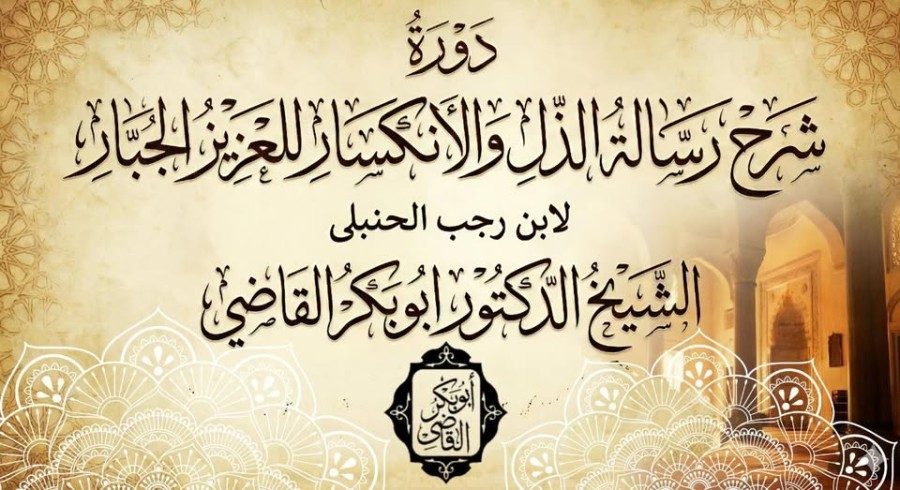 دَوْرَةُ
شَرَحْ رَسَّالةُ الذّلِ وَالأنكسَارِ للعَزِيزُ الجُبَّارِ
لابن رجب الحنبلى
الشَّيْخُ الدّكتُوْر ابُوبَكْرُ القَاضي
أبوبَكْر
القَاضِي